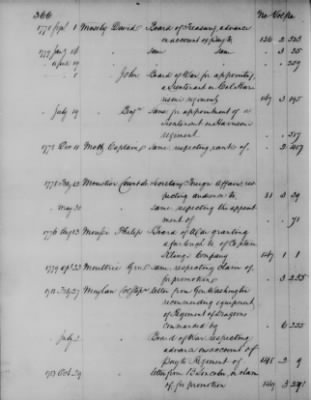 366 No Vol pa
1778 Sept 1 Mosely David Board of Treasury, advance
on account of pay to 136 2 523
1779 Jany 16 " same same " 3 25
" 259
" John Board of War for appointing
a Lieutenant in Col Har
rison regiment 147 3 195
" July 19 " Benj. Same for appointment of a
Lieutenant in Harrison
regiment " 257
1777 Dec 11 Mott Captain, same respecting rank of " 2 457
Secretary Foreign Affairs res
pecting audience to 81 2 29
" May 30 " same respecting the appoint
ment of " 71
1776 Aug 13 Philip Board of War granting
a furlough to of Captain
Company 147 1 1
1779 Apl 23 Moultrie Genl same, respecting claim of
for promotion " 3 235
Feb 27 Meylan Letter from Gen Washington
recommending equipment
of Regiment of Dragoons
commanded by " 6 235
" July 2 " Board of War respecting
advance on account of
pay to Regiment of 148 2 9
Oct 29 " letter from B Lincoln, on claim
of for promotion 149 3